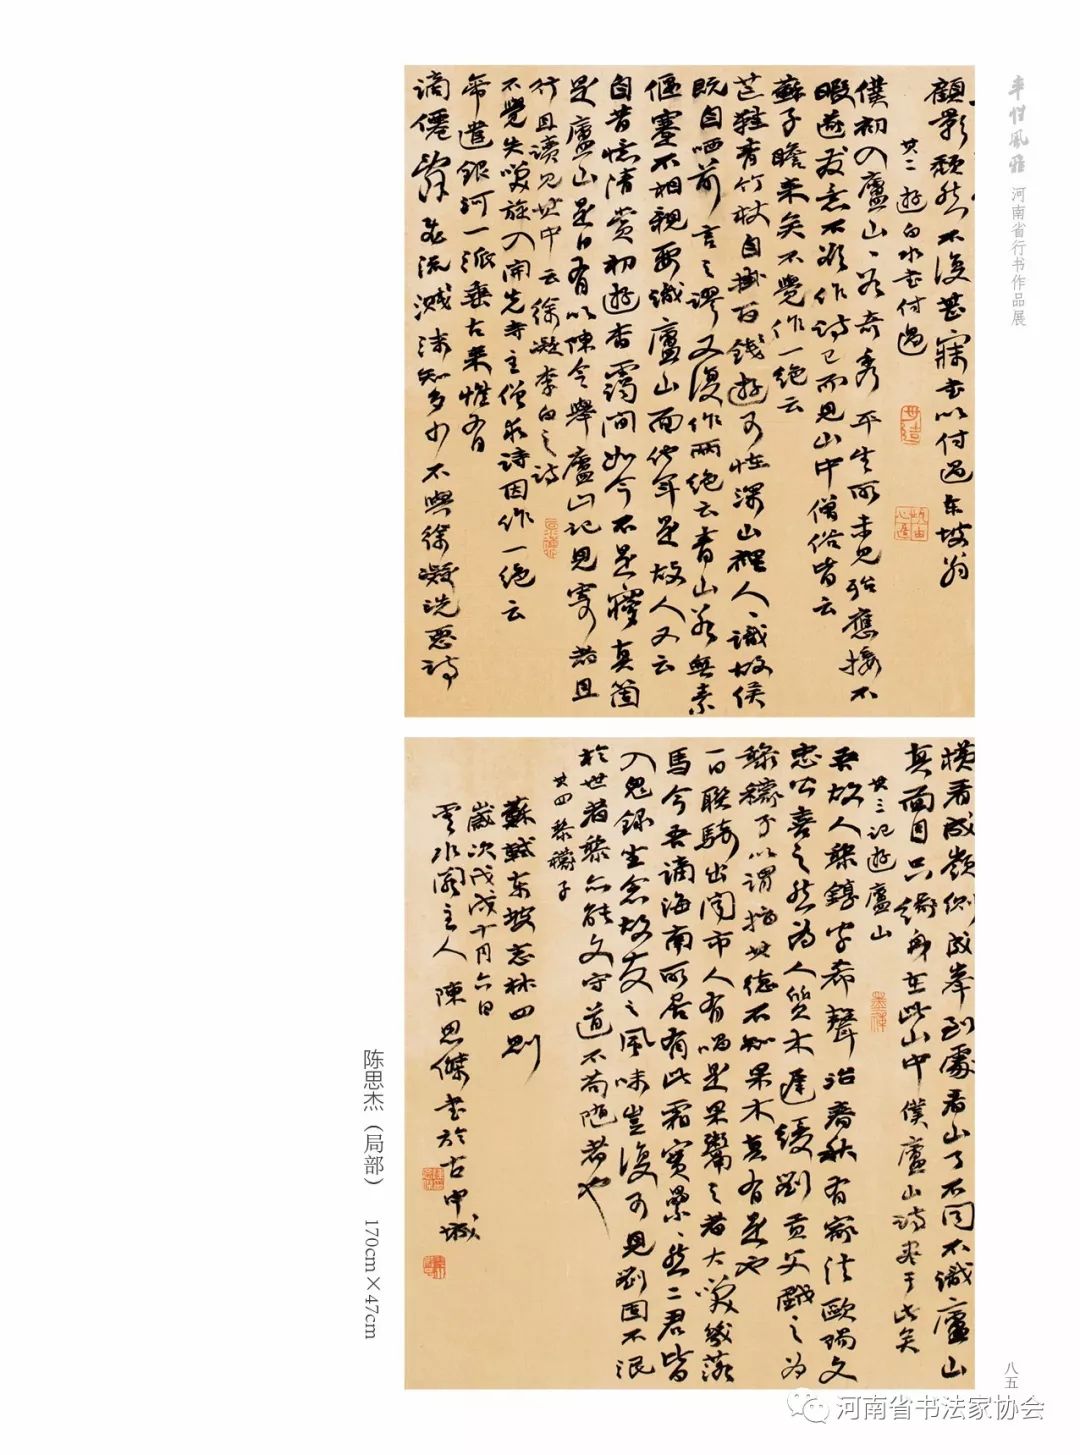 丰性风雅 河南省行书作品展
顧影頹然不復甚寐書以付過東坡翁
其二 遊白水書付過
僕初入廬山山谷奇秀平生所未見殆應接不
暇遂发意不欲作詩已而見山中僧俗皆云
蘇子瞻来矣不覺作一绝云
芒鞋青竹杖自掛百錢遊可怪深山裡人人識故侯
既自哂前言之謬又復作兩绝云青山若無素
偃蹇不相親要識廬山面他年是故人又云
自昔懷清赏初遊杳靄间如今不是夢真箇
是廬山是日有以陳令舉廬山記見寄者且
行且讀見其中云徐凝李白之詩
不覺失笑旋入開先寺主僧求詩因作一绝云
帝遣銀河一派垂古来惟有
謫僊辭飛流濺沫知多少不與徐凝洗惡詩
橫看成嶺側成峯到處看山了不同不識廬山
真面目只緣身在此山中僕廬山詩盡于此矣
其三記遊廬山
吾故人黎錞字希聲治春秋有家法歐陽文
忠公喜之然為人質木遲緩劉貢父戲之为
黎檬子以謂指其德不知果木真有是也
一日聯騎出聞市人有唱是果鬻之者大笑幾落
馬今吾謫海南所居有此霜實纍纍然二君皆
入鬼錄坐念故友之風味豈復可見劉固不泯
於世者黎亦能文守道不苟随者也
其四黎檬子
蘇軾东坡志林四則
歲次戊戌十月六日
雲水閣主人 陳思傑書於古申城
陈思杰（局部） 170cm×47cm
八五
河南省书法家协会